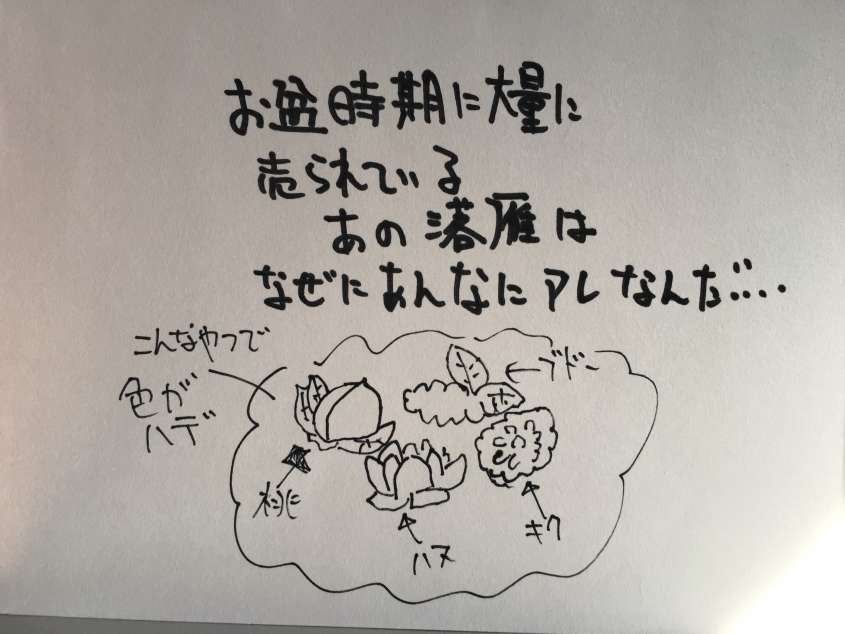 お盆時期に大量に
売られている
あの落雁は
なぜにあんなにアレなんだ…
こんなやつで
色が
ハデ
ブドー
桃
ハス
キク